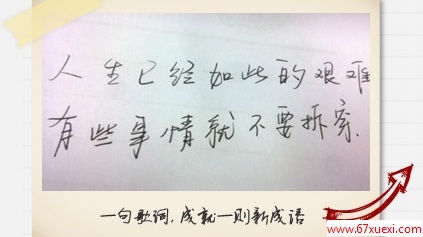 人生已经如此的艰难
有些事情就不要拆穿.
一句歌词，成就一则新成语
www.67xuexi.com